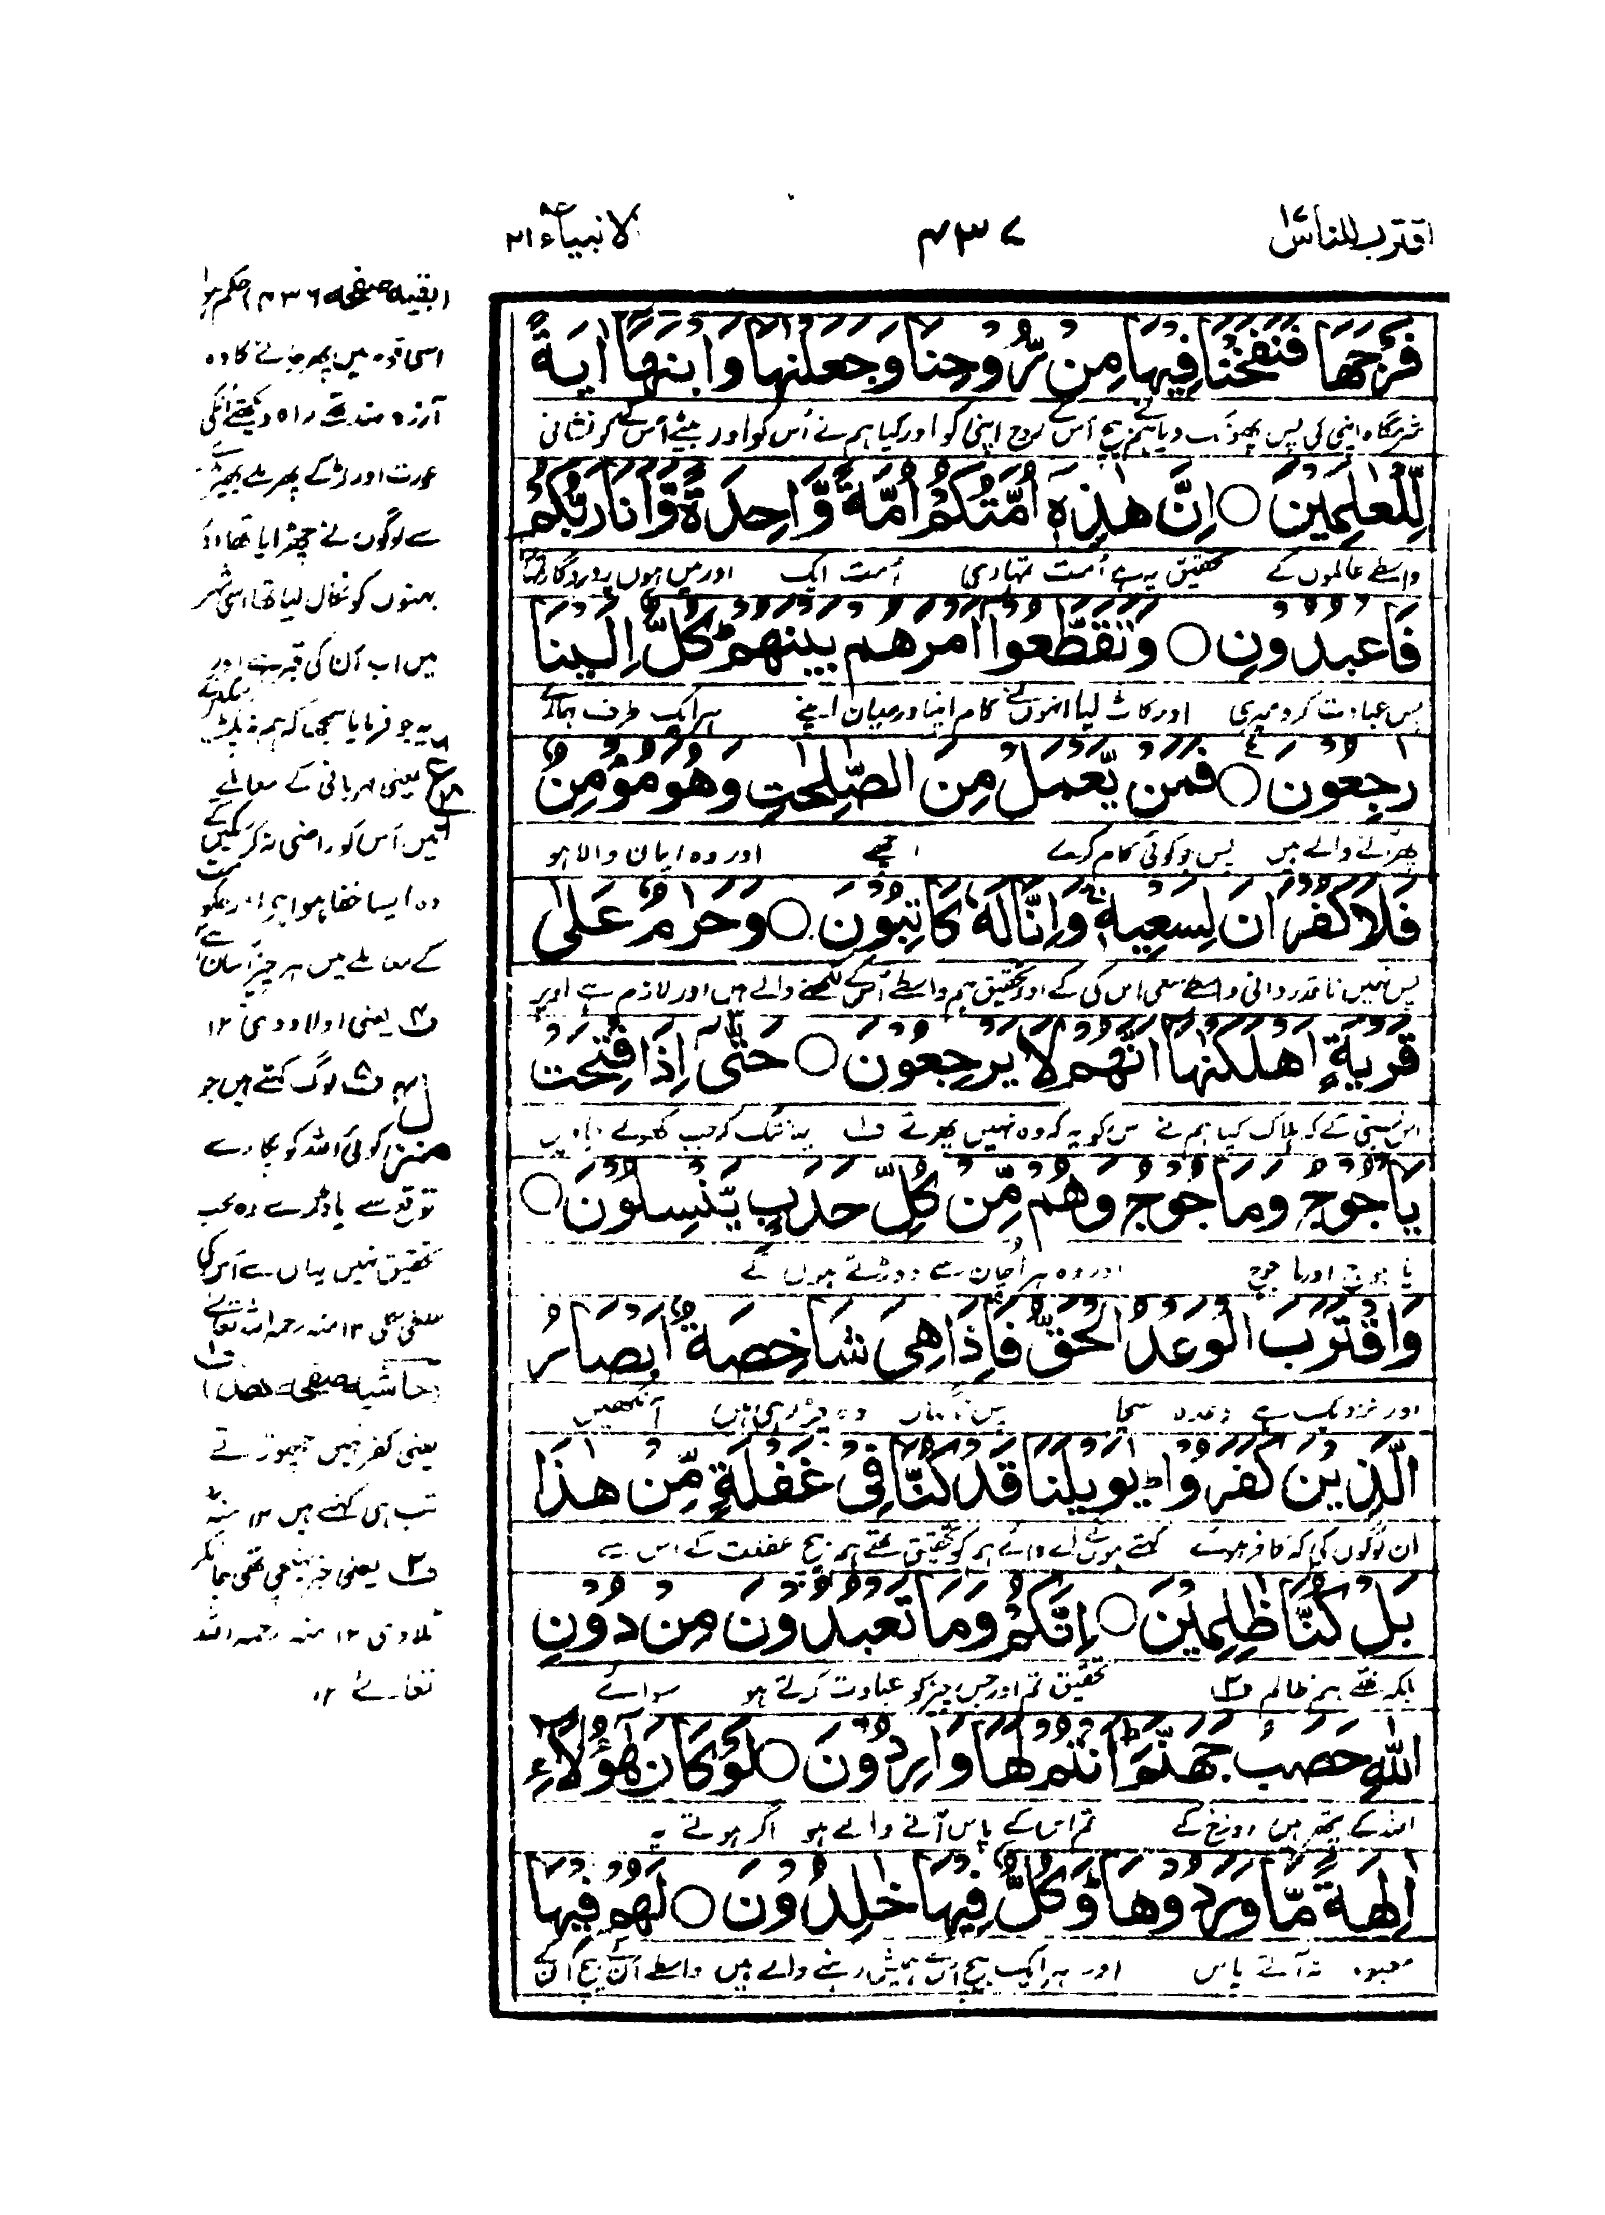 اقترب للناس ١٧
٤٣٧
الانبیاء ٢١
فَرْجَهَا فَنَفَخْنَا فِيهَا مِنْ رُّوْحِنَا وَجَعَلْنٰهَا وَابْنَهَا اٰيَةً
شرمگاہ اپنی کی پس پھونک دیا ہم نے بیچ اُس کے روح اپنی کو اور کیا ہم نے اُس کو اور بیٹے اُس کے کو نشانی
لِّلْعٰلَمِيْنَ ○ اِنَّ هٰذِهٖٓ اُمَّتُكُمْ اُمَّةً وَّاحِدَةً وَّاَنَا رَبُّكُمْ
واسطے عالموں کے تحقیق یہ ہے اُمت تمہاری اُمت ایک اور میں ہوں پروردگار تمہارا
فَاعْبُدُوْنِ ○ وَتَقَطَّعُوْا اَمْرَهُمْ بَيْنَهُمْ ؕ كُلٌّ اِلَيْنَا
پس عبادت کرو میری اور کاٹ لیا انہوں نے کام اپنا درمیان اپنے ہر ایک طرف ہمارے
رٰجِعُوْنَ ○ فَمَنْ يَّعْمَلْ مِنَ الصّٰلِحٰتِ وَهُوَ مُؤْمِنٌ
پھر آنے والے ہیں پس جو کوئی کام کرے اچھے اور وہ ایمان والا ہو
فَلَا كُفْرَانَ لِسَعْيِهٖ ۚ وَاِنَّا لَهٗ كَاتِبُوْنَ ○ وَحَرٰمٌ عَلٰى
پس نہیں ناقدردانی واسطے سعی اس کی کے اور تحقیق ہم واسطے اُس کے لکھنے والے ہیں اور لازم ہے اوپر
قَرْيَةٍ اَهْلَكْنٰهَا اَنَّهُمْ لَا يَرْجِعُوْنَ ○ حَتّٰٓى اِذَا فُتِحَتْ
اس بستی کے کہ ہلاک کیا ہم نے اس کو یہ کہ وہ نہیں پھرتے ف۱ یہاں تک کہ جب کھولے جاویں
يَاْجُوْجُ وَمَاْجُوْجُ وَهُمْ مِّنْ كُلِّ حَدَبٍ يَّنْسِلُوْنَ ○
یاجوج اور ماجوج اور وہ ہر اُچان سے دوڑتے ہوں گے
وَاقْتَرَبَ الْوَعْدُ الْحَقُّ فَاِذَا هِيَ شَاخِصَةٌ اَبْصَارُ
اور نزدیک ہے وعدہ سچا پس ناگہاں وہ چڑھ رہی ہیں آنکھیں
الَّذِيْنَ كَفَرُوْا ؕ يٰوَيْلَنَا قَدْ كُنَّا فِيْ غَفْلَةٍ مِّنْ هٰذَا
ان لوگوں کی کہ کافر ہوئے کہتے ہوں گے اے وائے ہم کو تحقیق تھے ہم بیچ غفلت کے اس سے
بَلْ كُنَّا ظٰلِمِيْنَ ○ اِنَّكُمْ وَمَا تَعْبُدُوْنَ مِنْ دُوْنِ
بلکہ تھے ہم ظالم ف۲ تحقیق تم اور جس چیز کو عبادت کرتے ہو سوائے
اللّٰهِ حَصَبُ جَهَنَّمَ ؕ اَنْتُمْ لَهَا وَارِدُوْنَ ○ لَوْ كَانَ هٰٓؤُلَآءِ
اللہ کے پتھر ہیں دوزخ کے تم اس کے پاس آنے والے ہو اگر ہوتے یہ
اٰلِهَةً مَّا وَرَدُوْهَا ؕ وَكُلٌّ فِيْهَا خٰلِدُوْنَ ○ لَهُمْ فِيْهَا
معبود نہ آتے پاس اور ہر ایک بیچ اس کے ہمیش رہنے والے ہیں واسطے اُن کے بیچ اُن کے
(بقیہ صفحہ ۴۳۶) حکم ہوا
اسی قوم میں پھر جانے کا وہ
آرزو مند تھے راہ دیکھتے اُنکی
عورت اور لڑکے پھر ملے بھیڑیے
سے لوگوں نے چھڑایا تھا اور
بہتوں کو نکال لیا تھا اسی شہر
میں اب اُن کی قبر ہے اور
یہ جو فرمایا سمجھے کہ ہم نہ پکڑ سکیں گے
یعنی مہربانی کے معاملے
میں اُس کو راضی نہ کر سکیں گے
وہ ایسا خفا ہوا
کے معاملے میں ہر چیز آسان ہے
ف۴ یعنی اولاد دی ۱۲
ف۵ لوگ کہتے ہیں جو
کوئی اللہ کو پکارے
توقع سے یا ڈر سے وہ محب
تحقیق نہیں یہاں سے اُس کی
غلطی نکلی ۱۲ منہ رحمہ اللہ تعالےٰ
(حاشیہ صفحہ ھٰذا) ف۱
یعنی کفر نہیں چھوڑتے
تب ہی کہتے ہیں ۱۲ منہ
ف۲ یعنی خبر پہنچی تھی
تعالےٰ ۱۲